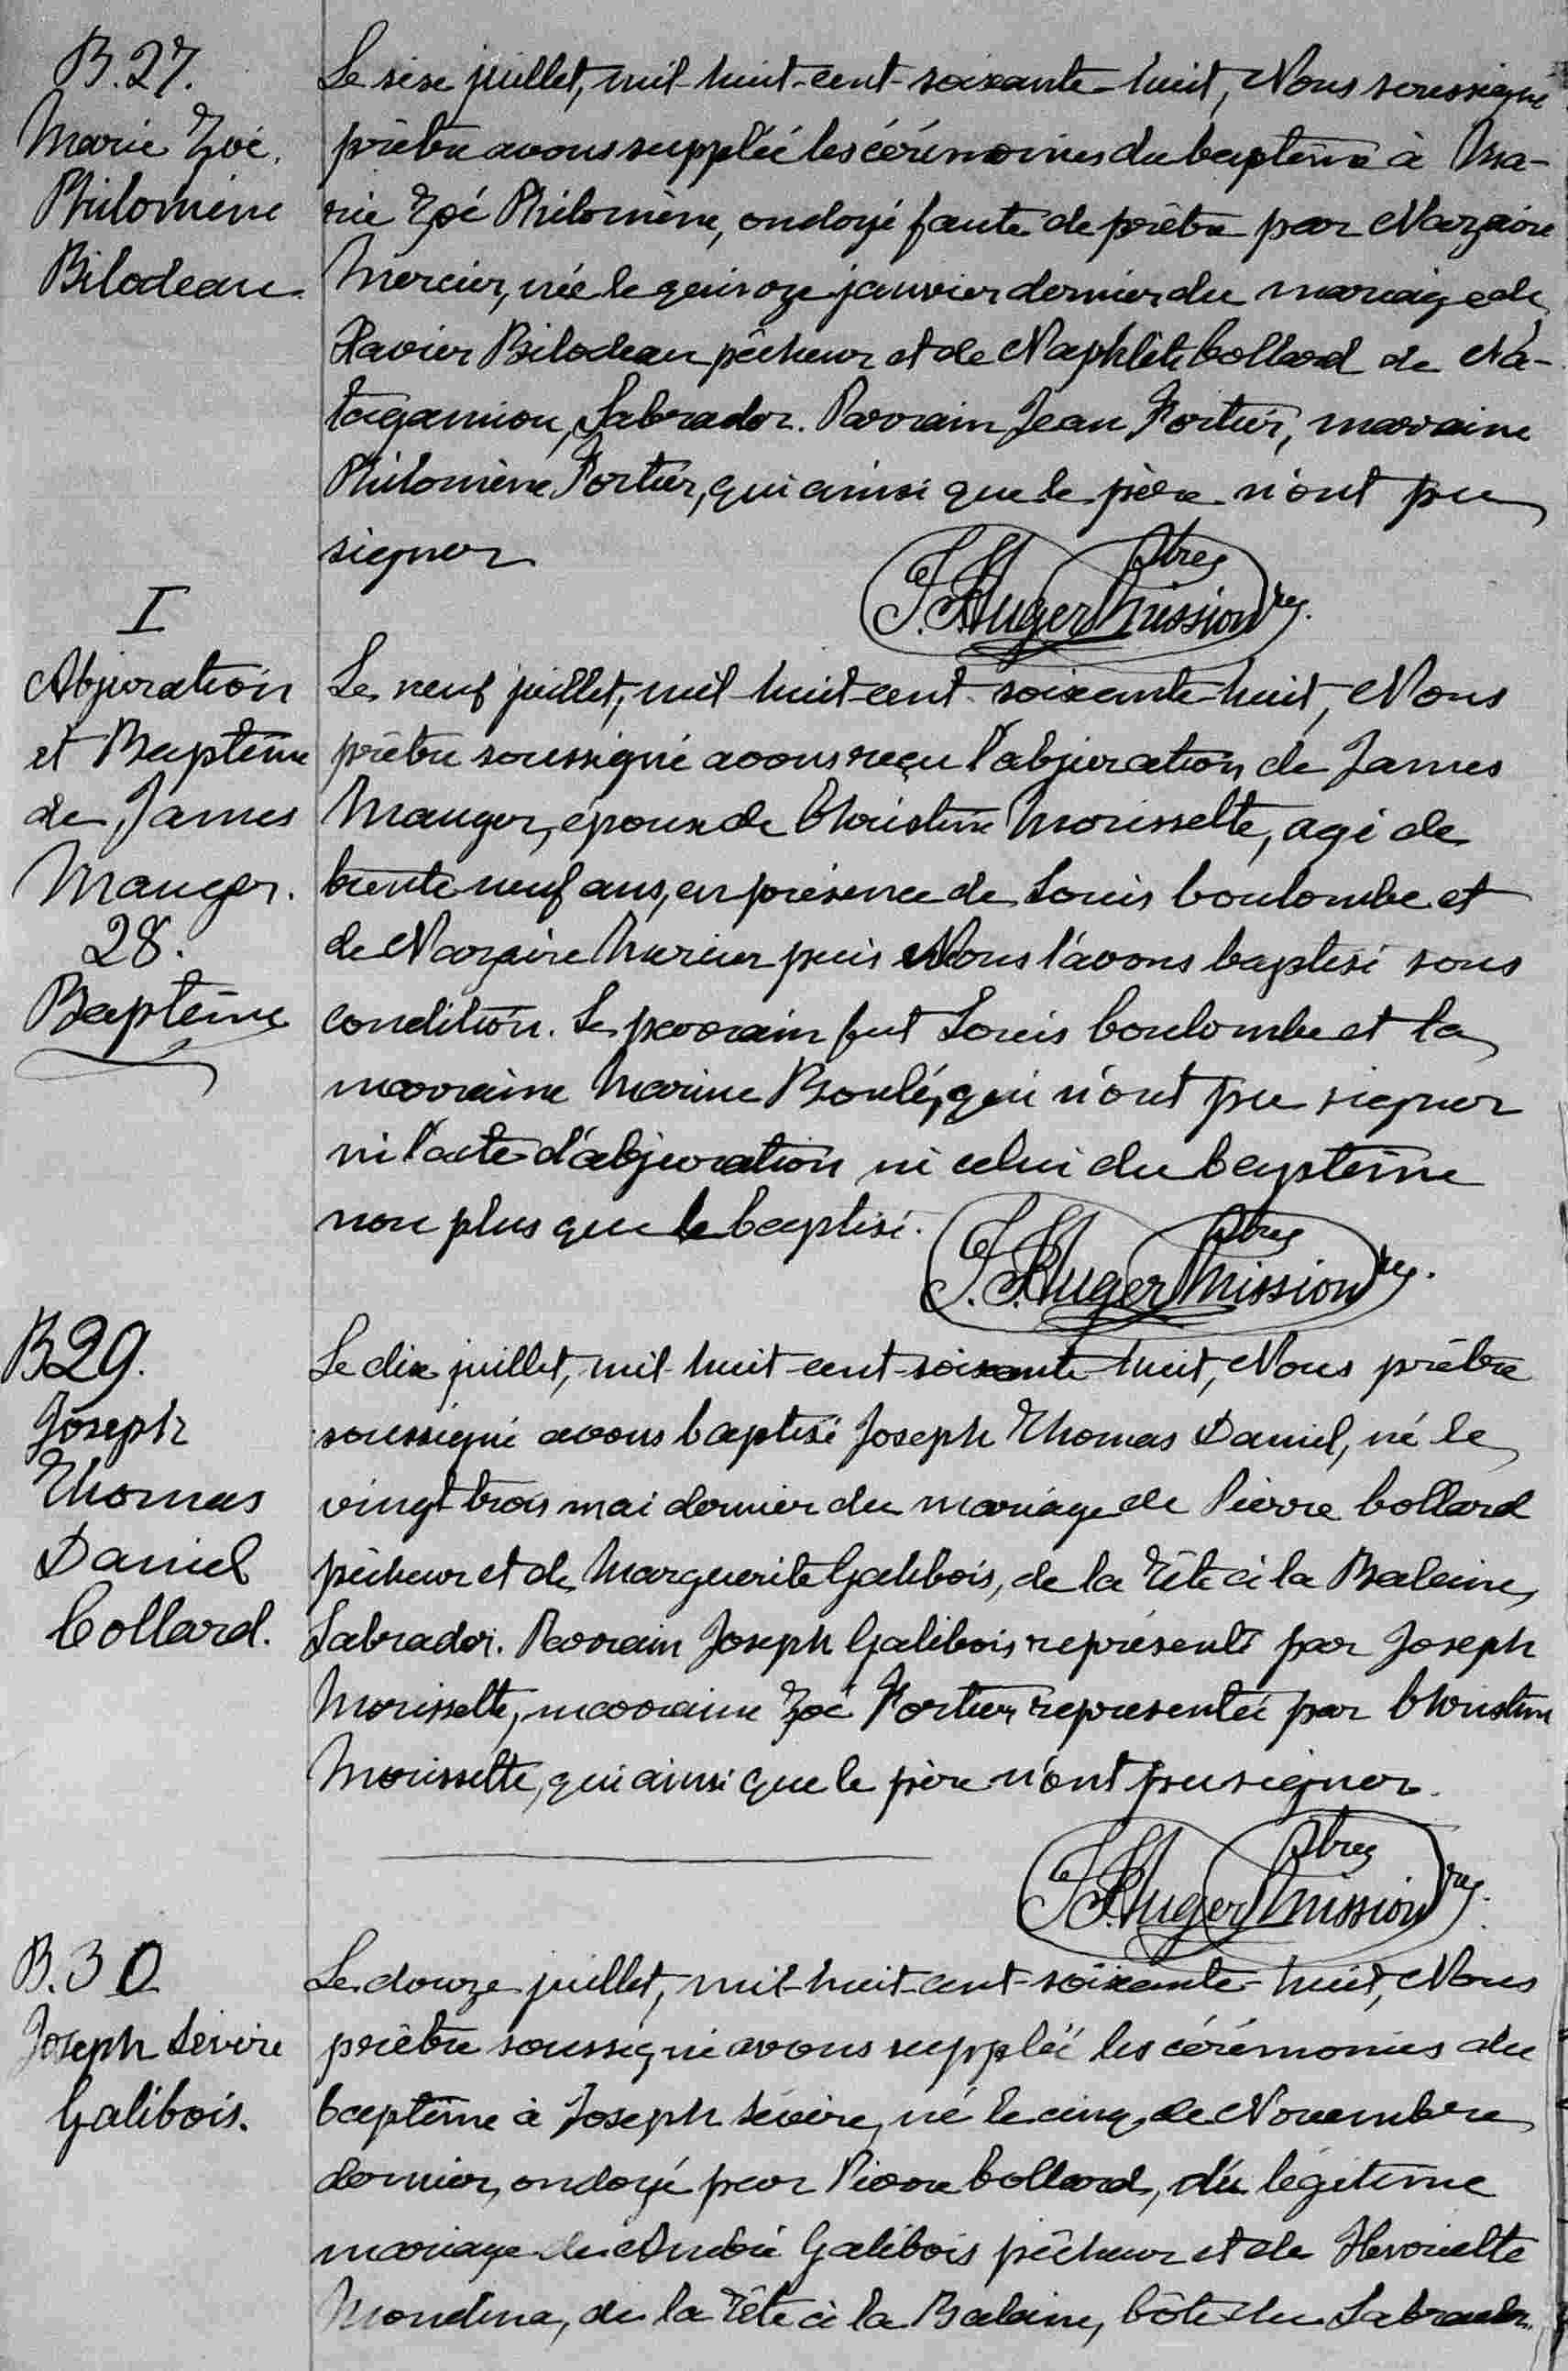 B.27.
Marie Zoé
Philomène
Bilodeau
Le seize juillet, mil-huit-cent-soixante-huit, Nous soussigné
prêtre avons suppléé les cérémonies du baptême à Ma-
rie Zoé Philomène, ondoyé faute de prêtre par Nazaire
Mercier, née le quinze janvier dernier du mariage de
Xavier Bilodeau pêcheur et de Naphlète Collard de Na-
tagamiou, Labrador. Parrain Jean Fortier, marraine
Philomène Fortier, qui ainsi que le père n'ont pu
signer
F. X. Auger Ptre Missionre.
I
Abjuration
et Baptême
de James
Mauger.
28.
Baptême
Le neuf juillet, mil-huit-cent-soixante-huit, Nous
prêtre soussigné avons reçu l'abjuration de James
Mauger, époux de Christine Morissette, agé de
trente neuf ans, en présence de Louis Coulombe et
de Nazaire Mercier puis Nous l'avons baptisé sous
condition. Le parrain fut Louis Coulombe et la
marraine Marine Boulé, qui n'ont pu signer
ni l'acte d'abjuration ni celui du baptême
non plus que le baptisé.
Auger Ptre Missionre.
B29.
Joseph
Thomas
Daniel
Collard.
Le dix juillet, mil-huit-cent-soixante-huit, Nous prêtre
soussigné avons baptisé Joseph Thomas Daniel, né le
vingt trois mai dernier du mariage de Pierre Collard
pêcheur et de Marguerite Galibois, de la Tête à la Baleine,
Labrador. Parrain Joseph Galibois représenté par Joseph
Morissette, marraine Zoé Fortier représentée par Christine
Morissette, qui ainsi que le père n'ont pu signer.
Auger Ptre Missionre.
B.30
Joseph Sévère
Galibois.
Le douze juillet, mil-huit-cent-soixante-huit, Nous
prêtre soussigné avons suppléé les cérémonies du
baptême à Joseph Sévère, né le cinq de Novembre
dernier, ondoyé par Pierre Collard, du légitime
mariage de André Galibois pêcheur et de Henriette
Mondina, de la Tête à la Baleine, Côte du Labrador.